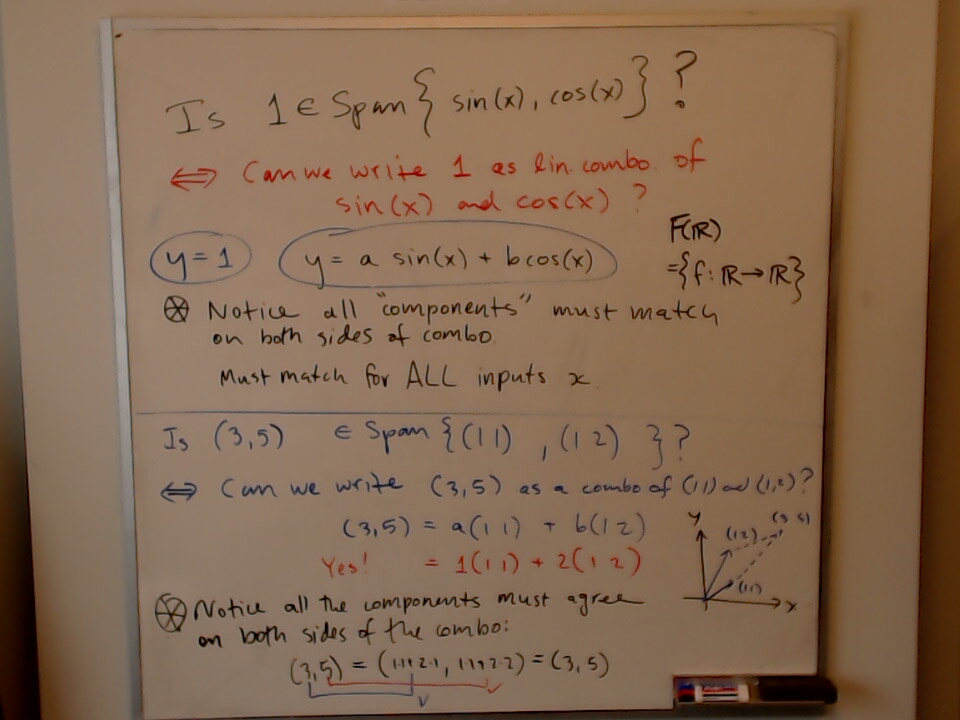 Is 1 ∈ Span { sin(x), cos(x) } ?
⟺ Can we write 1 as lin. combo. of
sin(x) and cos(x) ?
y = 1 y = a sin(x) + b cos(x)
F(ℝ)
= {f: ℝ → ℝ}
⊛ Notice all "components" must match
on both sides of combo.
Must match for ALL inputs x
Is (3,5) ∈ Span {(1 1) , (1 2) }?
⟺ Can we write (3,5) as a combo of (1 1) and (1,2)?
(3,5) = a(1 1) + b(1 2)
Yes! = 1(1 1) + 2(1 2)
y
(1 2)
(3 5)
(1 1)
x
⊛ Notice all the components must agree
on both sides of the combo:
(3,5) = (1·1+2·1, 1·1+2·2) = (3,5)